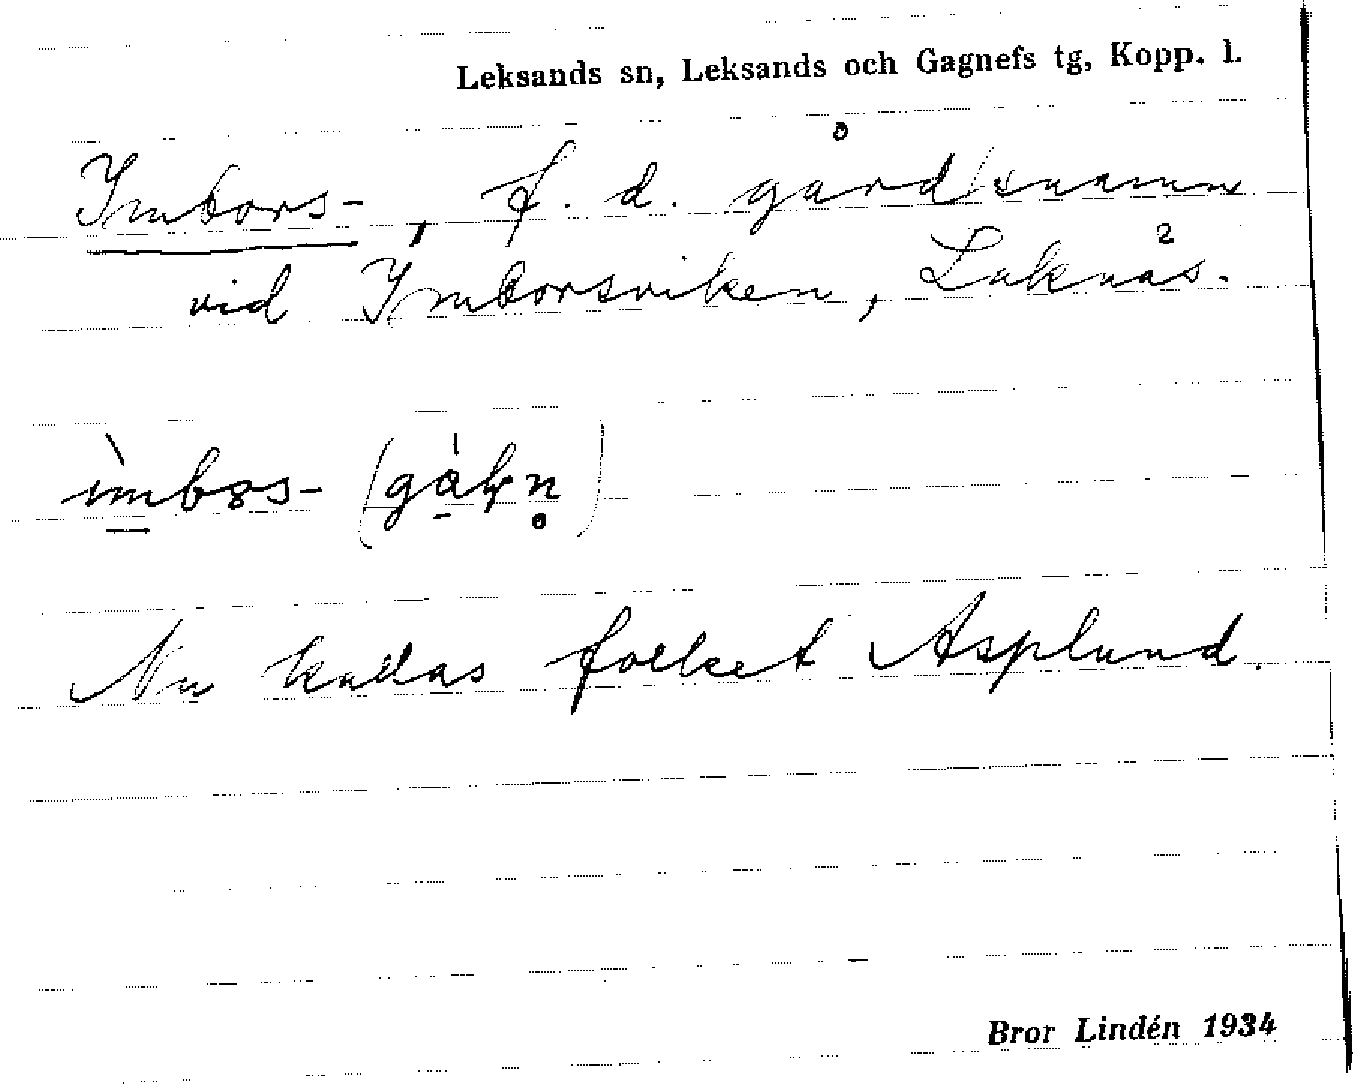 Leksands sn, Leksands och Gagnefs tg, Kopp. l.
Imbors-, f. d. gård(snamn
vid Imborsviken, Laknäs.
ìmbəs-
Nu kallas folket Asplund.
Bror Lindén 1934